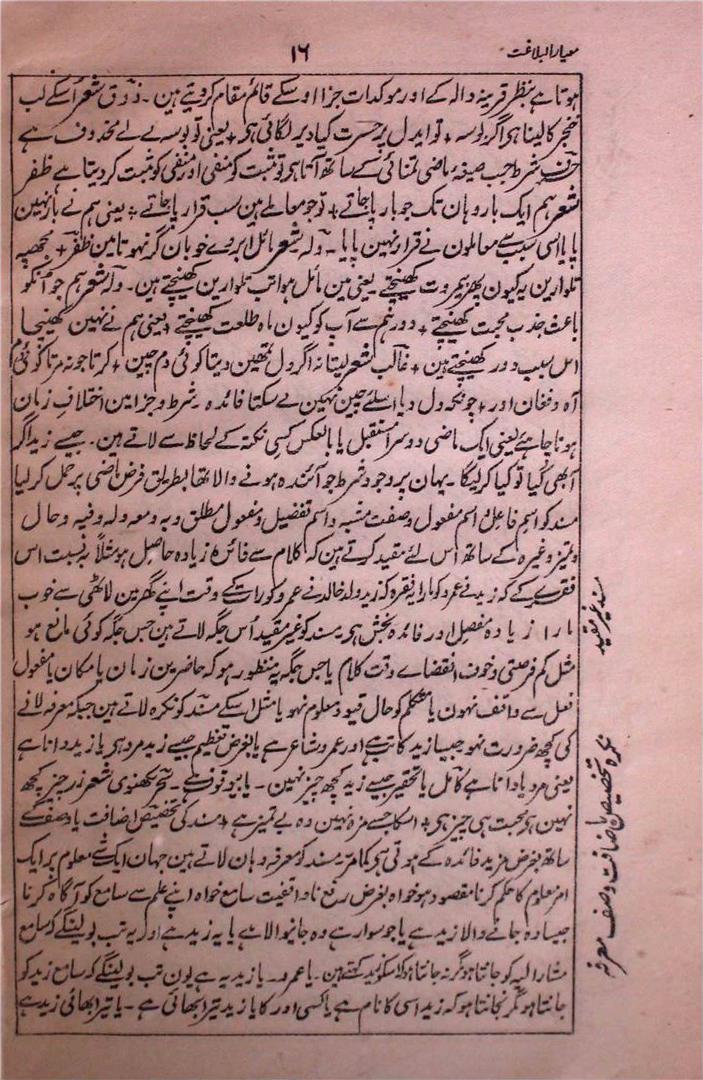 معیار البلاغت
۱۶
ہوتا ہے بنظر قرینہ دالہ کے اور موکدات جزا اوسکے قائم مقام کر دیتے ہین ۔ ذوق شعر اُسکے لب
خنجر کا لینا ہی اگر بوسہ + تو ایدل پر حسرت کیا دیر لگائی ہی + یعنی تو بوسہ لے لے محذوف ہے
حرف شرط جب صیغہ ماضی تمنائی کے ساتھ آتا ہی تو مثبت کو منفی اور منفی کو مثبت کر دیتا ہے ظفر
شعر ہم ایک بار وہان تک جو بار پا جاتے + تو جو معاملے ہین سب قرار پا جاتے + یعنی ہم نے بار نہین
پایا اسی سبب سے معاملون نے قرار نہین پایا ۔ ولہ شعر مائل ابروے خوبان گر نہوتا مین ظفر + مجھپہ
تلوارین یہ کیون پھر بیمروت کھینچتے یعنی مین مائل ہوا تب تلوارین کھینچتے ہین ۔ ولہ شعر ہم جو انکو
باعث جذب محبت کھینچتے + دور ہم سے آپ کو کیون ماہ طلعت کھینچتے + یعنی ہم نے نہین کھینچا
اس سبب دور کھینچتے ہین + غالب شعر لیتا نہ اگر دل تمھین دیتا کوئی دم چین + کرتا جو نہ مرتا کوئی دم
آہ و فغان اور + چونکہ دل دیا اسلئے چین نہین لے سکتا فائدہ ۔ شرط و جزا مین اختلاف زمان
ہونا چاہئے یعنی ایک ماضی دوسرا مستقبل یا بالعکس کسی نکتہ کے لحاظ سے لاتے ہین ۔ جیسے زید اگر
آبھی گیا تو کیا کر لیگا ۔ یہان پر وجود شرط جو آئندہ ہونے والا تھا بطریق فرض ماضی پر حمل کر لیا
مسند کو اسم فاعل و اسم مفعول و صفت مشبہ و اسم تفضیل و مفعول مطلق و بہ و معہ و لہ و فیہ و حال
و تمیز وغیرہ کے ساتھ اس لئے مقید کرتے ہین کہ کلام سے فائدہ زیادہ حاصل ہو مثلاً بہ نسبت اس
فقرے کے کہ زید نے عمرو کو مارا یہ فقرہ کہ زید ولد خالد نے عمرو کو رات کے وقت اپنے گھر مین لاٹھی سے خوب
مارا زیادہ مفصل اور فائدہ بخش ہی مسند کو غیر مقید اُس جگہ لاتے ہین جس جگہ کوئی مانع ہو
مثل کم فرصتی و خوف انقضاے وقت کلام یا جس جگہ یہ منظور ہو کہ حاضرین زمان یا مکان یا مفعول
فعل سے واقف نہون یا متکلم کو حال قیود معلوم نہو یا مثل اسکے مسند کو نکرہ لاتے ہین جبکہ معرفہ لانے
کی کچھ ضرورت نہو جیسا زید کاتب ہے اور عمرو شاعر ہے یا بغرض تعظیم جیسے زید مرد ہی یا زید دانا ہے
یعنی مرد یا دانا ہے کامل یا تحقیر جیسے زید کچھ چیز نہین ۔ یا بیوقوف ہے ۔ سحر لکھنوی شعر زر چیز کچھ
نہین ہی محبت ہی چیز ہی + اسکا جسے مزہ نہین وہ بے تمیز ہے + مسند کی تخصیص اضافت یا وصف کے
ساتھ بغرض مزید فائدہ کے ہوتی ہی کامر مسند کو معرفہ وہان لاتے ہین جہان ایک شے معلوم پر ایک
امر معلوم کا حکم کرنا مقصود ہو خواہ بغرض رفع ناواقفیت سامع خواہ اپنے علم سے سامع کو آگاہ کرنا
جیسا وہ جانے والا زید ہے یا جو سوار ہے وہ جانیوالا ہے یا یہ زید ہے اول یہ تب بولینگے کہ سامع
مشار الیہ کو جانتا ہو مگر نہ جانتا ہو کہ اسکو زید کہتے ہین ۔ یا عمرو ۔ یا زید یہ ہے یون تب بولینگے کہ سامع زید کو
جانتا ہو مگر نجانتا ہو کہ زید اسی کا نام ہے یا کسی اور کا یا زید تیرا بھائی ہے ۔ یا تیرا بھائی زید ہے
مسند غیر مقید
نکرہ تخصیص باضافت وصف معرفہ